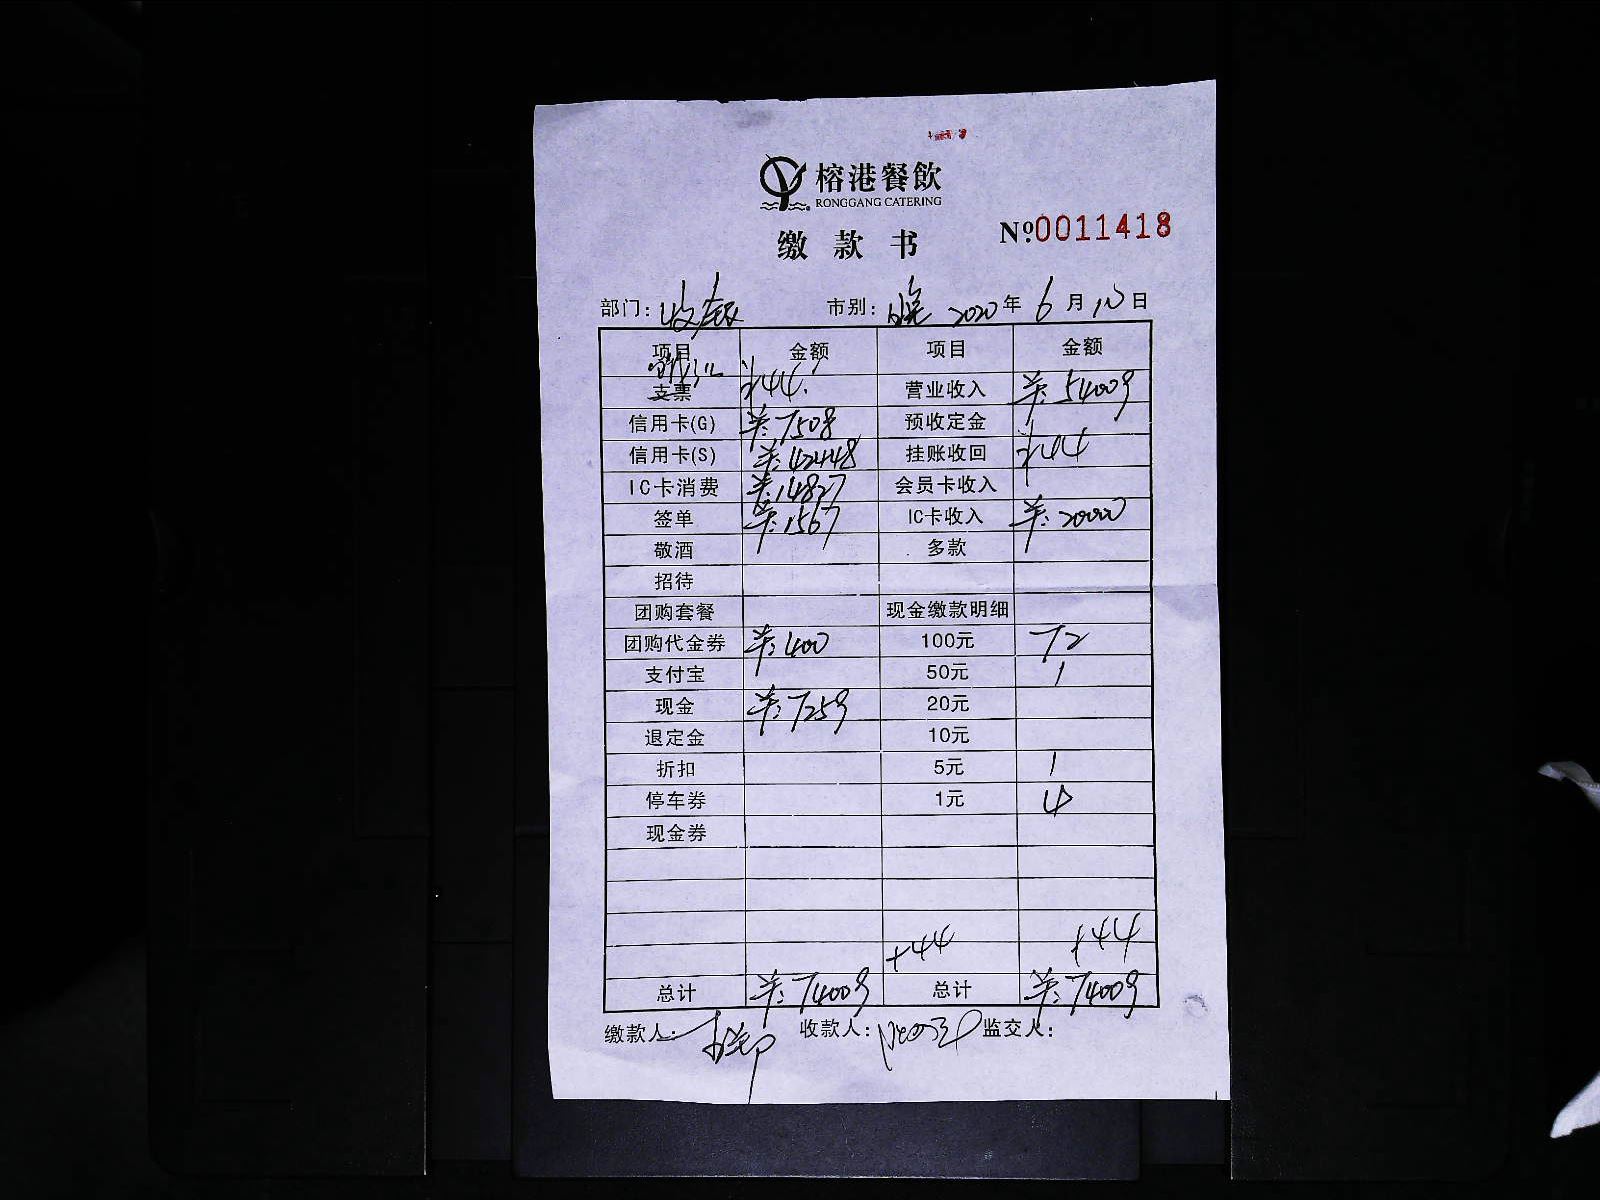 榕港餐飲
RONGGANG CATERING
缴款书
No.0011418
部门：收银 市别：晚 2020年6月10日
项目 金额 项目 金额
支票 +44. 营业收入 ¥:54009
信用卡(G) ¥:7508 预收定金
信用卡(S) ¥:42448 挂账收回 +44
IC卡消费 ¥:14827 会员卡收入
签单 ¥:1567 IC卡收入 ¥:20000
敬酒 多款
招待
团购套餐 现金缴款明细
团购代金券 ¥:400 100元 72
支付宝 50元 1
现金 ¥:7259 20元
退定金 10元
折扣 5元 1
停车券 1元 4
现金券
+44 +44
总计 ¥:74009 总计 ¥:74009
缴款人： 收款人： 监交人：